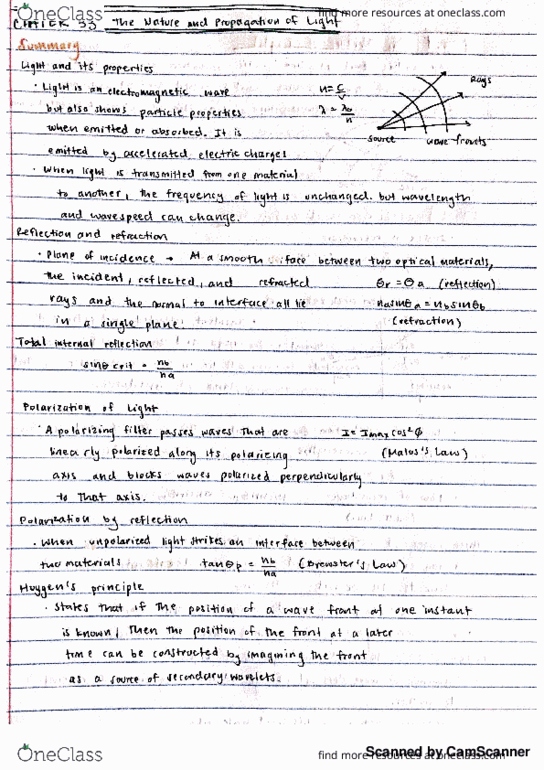 OneClass
find more resources at oneclass.com
CHAPTER 33 The Nature and Propagation of Light
Summary
Light and its properties
· Light is an electromagnetic wave n = c/v
but also shows particle properties λ = λ0/n
when emitted or absorbed. It is
emitted by accelerated electric charges
Rays
source wave fronts
· When light is transmitted from one material
to another, the frequency of light is unchanged. but wavelength
and wavespeed can change.
Reflection and refraction
· Plane of incidence → At a smooth iface between two optical materials,
the incident, reflected, and refracted θr = θa (reflection)
rays and the normal to interface all lie na sinθa = nb sinθb
in a single plane. (refraction)
Total internal reflection
sinθcrit = nb/na
Polarization of Light
· A polarizing filter passes waves that are I = Imax cos²ϕ
linearly polarized along its polarizing (Malus's Law)
axis and blocks waves polarized perpendicularly
to that axis.
Polarization by reflection
· When unpolarized light strikes an interface between
two materials tanθp = nb/na (Brewster's Law)
Huygen's principle
· States that if the position of a wave front at one instant
is known, then the position of the front at a later
time can be constructed by imagining the front
as a source of secondary wavelets.
OneClass
find more resources at oneclass.com
Scanned by CamScanner